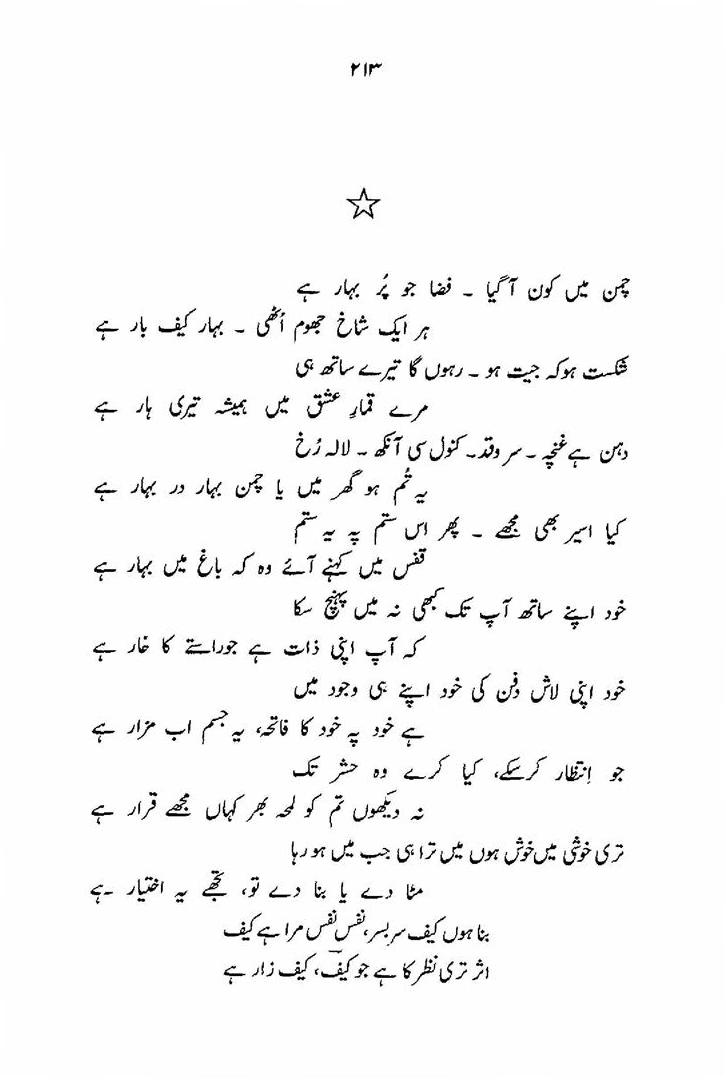 ۲۱۳
چمن میں کون آ گیا ۔ فضا جو پُر بہار ہے
ہر ایک شاخ جھوم اُٹھی ۔ بہار کیف بار ہے
شکست ہو کہ جیت ہو ۔ رہوں گا تیرے ساتھ ہی
مرے قمارِ عشق میں ہمیشہ تیری ہار ہے
دہن ہے غنچہ ۔ سرو قد ۔ کنول سی آنکھ ۔ لالہ رُخ
یہ تُم ہو گھر میں یا چمن بہار در بہار ہے
کیا اسیر بھی مجھے ۔ پھر اس ستم پہ یہ ستم
قفس میں کہنے آئے وہ کہ باغ میں بہار ہے
خود اپنے ساتھ آپ تک کبھی نہ میں پہنچ سکا
کہ آپ اپنی ذات ہے جو راستے کا خار ہے
خود اپنی لاش دفن کی خود اپنے ہی وجود میں
ہے خود پہ خود کا فاتحہ، یہ جسم اب مزار ہے
جو اِنتظار کر سکے، کیا کرے وہ حشر تک
نہ دیکھوں تم کو لمحہ بھر کہاں مجھے قرار ہے
تری خوشی میں خوش ہوں میں ترا ہی جب میں ہو رہا
مٹا دے یا بنا دے تو، تجھے یہ اختیار ہے
بنا ہوں کیف سر بسر، نفس نفس مرا ہے کیف
اثر تری نظر کا ہے جو کیفؔ، کیف زار ہے